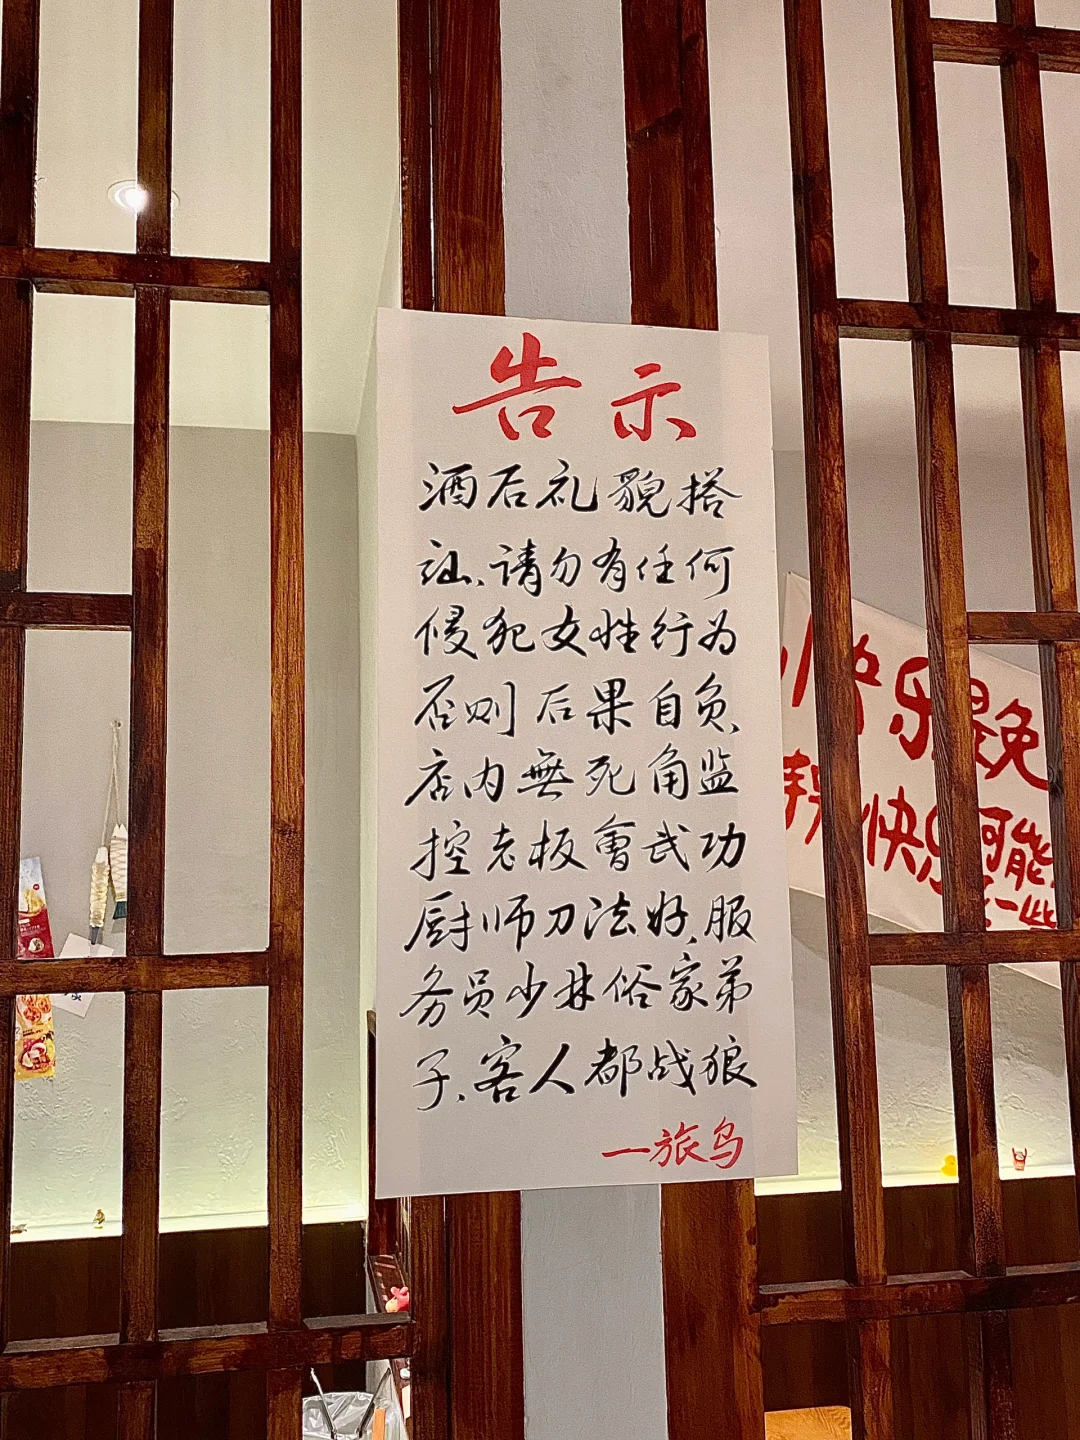 告示
酒后礼貌搭
讪、请勿有任何
侵犯女性行为
否则后果自负、
店内無死角监
控老板會武功
厨师刀法好、服
务员少林俗家弟
子、客人都战狼
一旅鸟
快乐是免
快乐可能
一些